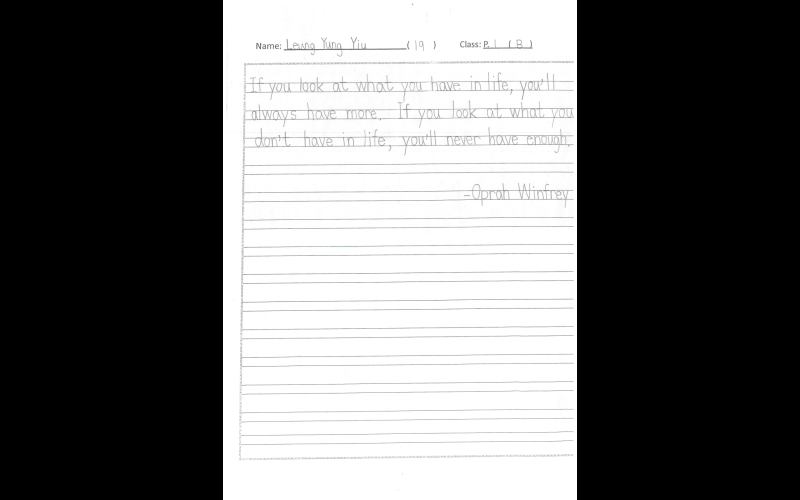 Name: Leung Yung Yiu (19) Class: P.1 (B)
If you look at what you have in life, you'll
always have more. If you look at what you
don't have in life, you'll never have enough.
-Oprah Winfrey